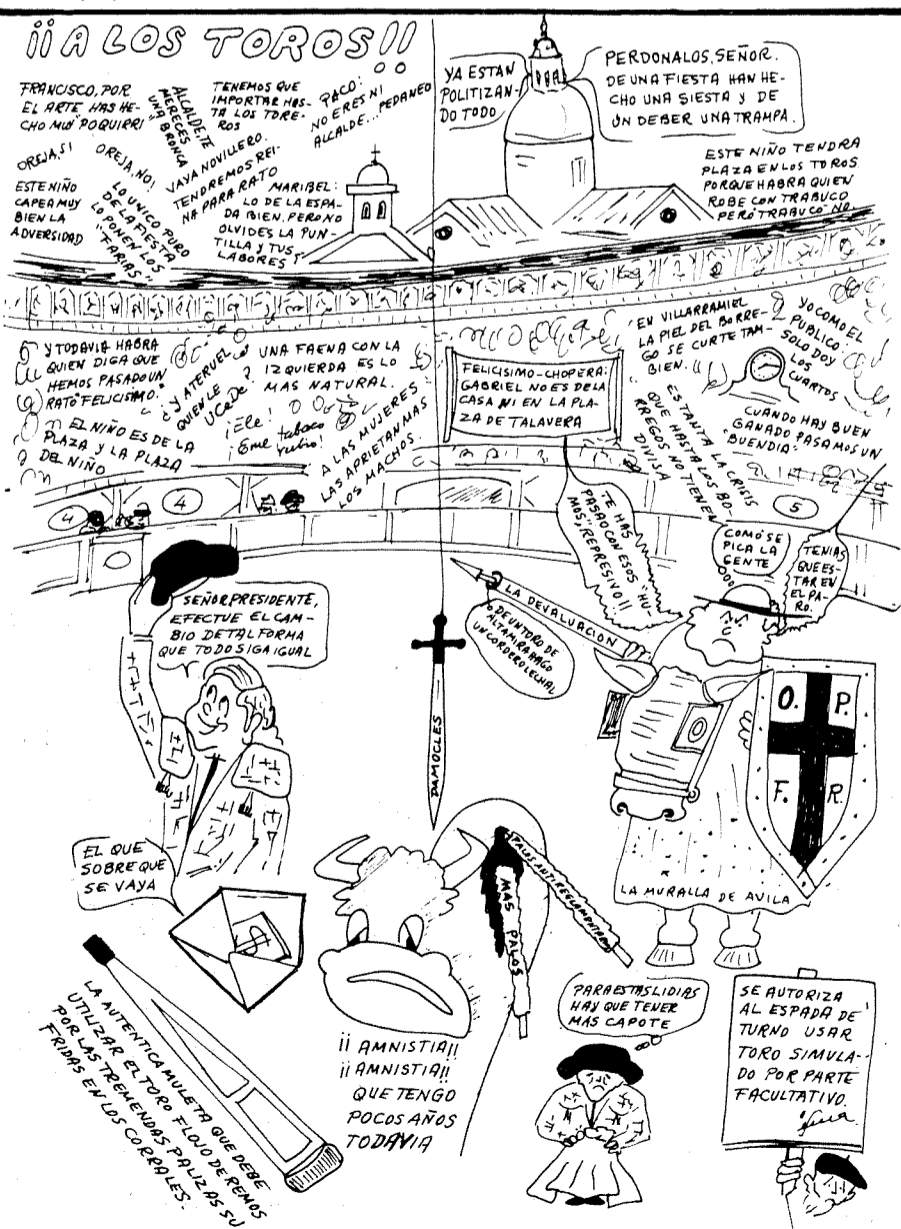 ¡¡A LOS TOROS!!
FRANCISCO, POR
EL ARTE HAS HE-
CHO MUY POQUIRRI
ALCALDE, TE
MERECES
UNA BRONCA
TENEMOS QUE
IMPORTAR HAS-
TA LOS TORE-
ROS
PACO:
NO ERES NI
ALCALDE... PEDANEO
OREJA, SI
OREJA, NO!
VAYA NOVILLERO.
TENDREMOS REI-
NA PARA RATO
ESTE NIÑO
CAPEA MUY
BIEN LA
ADVERSIDAD
LO UNICO PURO
DE LA FIESTA
LO PONEN LOS
"FARIAS"
MARIBEL:
LO DE LA ESPA-
DA BIEN, PERO NO
OLVIDES LA PUN-
TILLA Y TUS
LABORES
YA ESTAN
POLITIZAN-
DO TODO
PERDONALOS, SEÑOR.
DE UNA FIESTA HAN HE-
CHO UNA SIESTA Y DE
UN DEBER UNA TRAMPA.
ESTE NIÑO TENDRA
PLAZA EN LOS TOROS
PORQUE HABRA QUIEN
ROBE CON TRABUCO
PERO TRABUCO NO.
Y TODAVIA HABRA
QUIEN DIGA QUE
HEMOS PASADO UN
RATO FELICISIMO.
¿Y A TERUEL
QUIEN LE
UCeDe?
UNA FAENA CON LA
IZQUIERDA ES LO
MAS NATURAL.
¡Ele!
¡Eme tabaco
rubio!
EL NIÑO ES DE LA
PLAZA Y LA PLAZA
DEL NIÑO
A LAS MUJERES
LAS APRIETAN MAS
LOS MACHOS.
FELICISIMO-CHOPERA:
GABRIEL NO ES DE LA
CASA NI EN LA PLA-
ZA DE TALAVERA
EN VILLARRAMIEL
LA PIEL DEL BORRE-
GO SE CURTE TAM-
BIEN.
YO COMO EL
PUBLICO:
SOLO DOY
LOS
CUARTOS
ES TANTA LA CRISIS
QUE HASTA LOS BO-
RREGOS NO TIENEN
DIVISA
CUANDO HAY BUEN
GANADO PASAMOS UN
"BUENDIA"
4
4
5
TE HAS
PASAO CON ESOS "HU-
MOS", REPRESIVO!!
COMO SE
PICA LA
GENTE
TENIAS
QUE ES-
TAR EN
EL PA-
RO.
SEÑOR PRESIDENTE,
EFECTUE EL CAM-
BIO DE TAL FORMA
QUE TODO SIGA IGUAL
LA DEVALUACION
DE UN TORO DE
ALTAMIRA HAGO
UN CORDERO LECHAL
DAMOCLES
O. P.
F. R.
LA MURALLA DE AVILA
EL QUE
SOBRE QUE
SE VAYA
MAS PALOS
PALOS ANTIREGLAMENTARIOS
LA AUTENTICA MULETA QUE DEBE
UTILIZAR EL TORO FLOJO DE REMOS
POR LAS TREMENDAS PALIZAS SU
FRIDAS EN LOS CORRALES.
¡¡AMNISTIA!!
¡¡AMNISTIA!!
QUE TENGO
POCOS AÑOS
TODAVIA
PARA ESTAS LIDIAS
HAY QUE TENER
MAS CAPOTE
SE AUTORIZA
AL ESPADA DE
TURNO USAR
TORO SIMULA-
DO POR PARTE
FACULTATIVO.